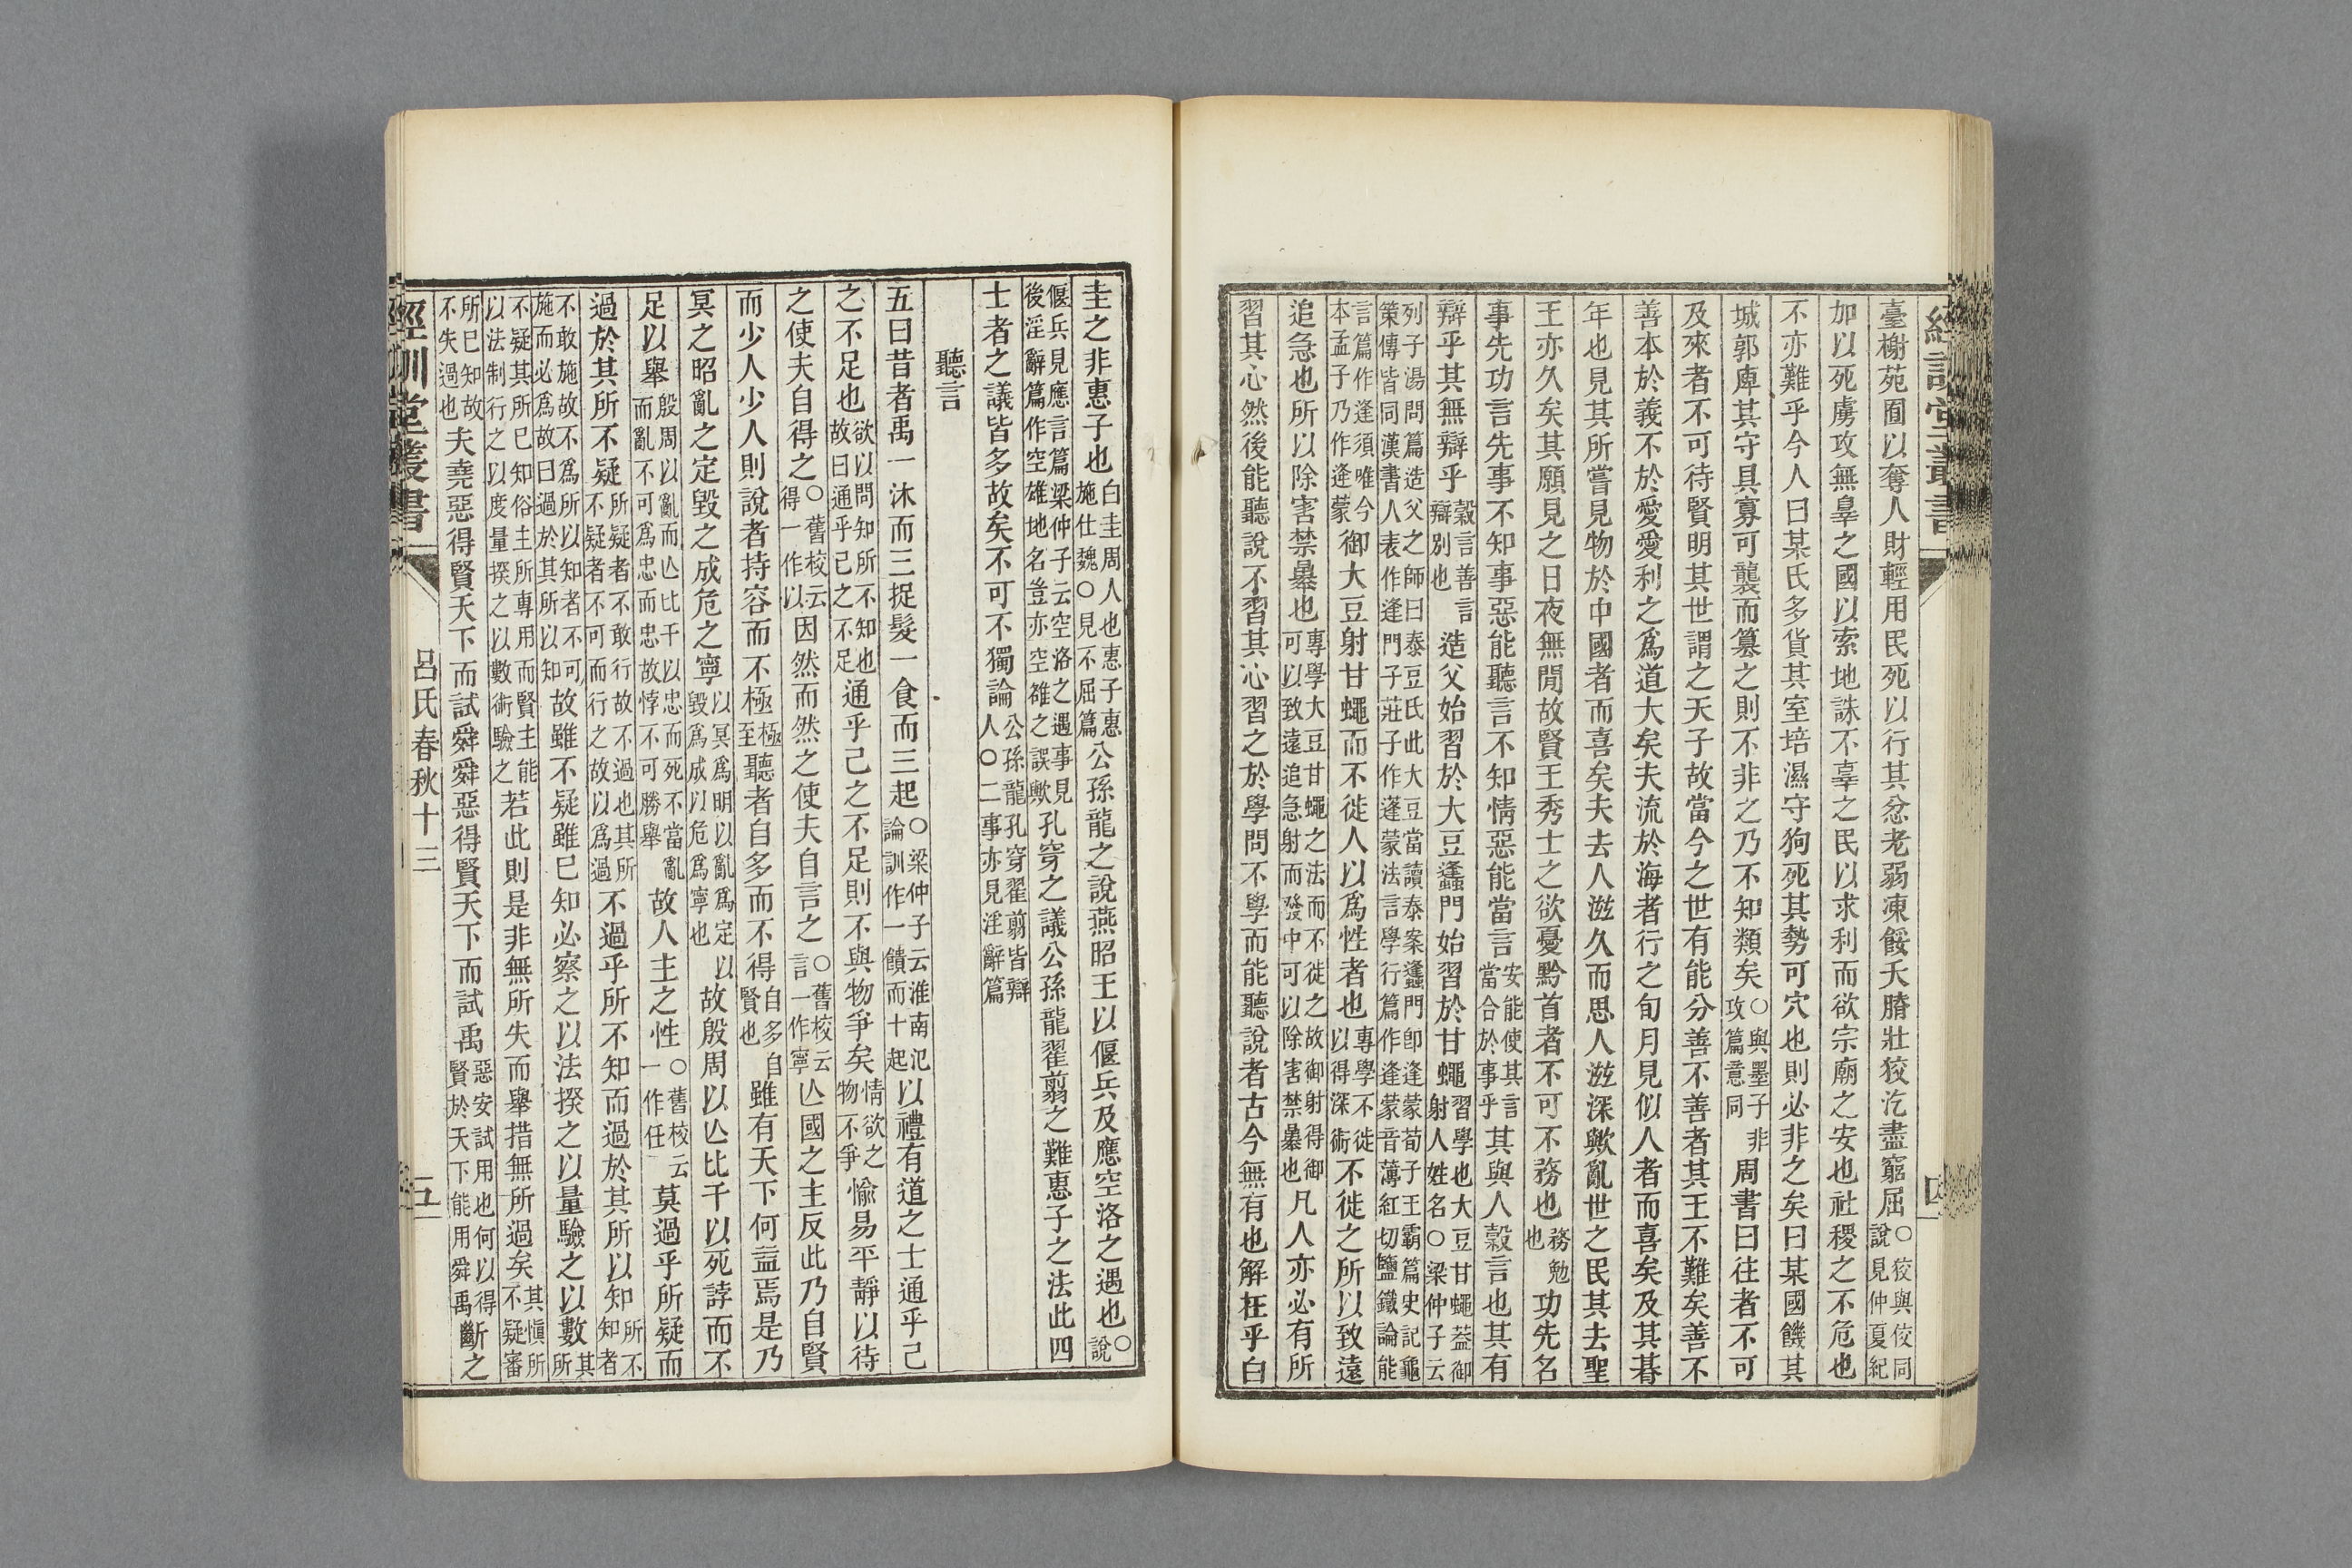 經訓堂叢書
四
臺榭苑囿以奪人財輕用民死以行其忿老弱凍餒夭膌壯狡汔盡窮屈○狡與佼同說見仲夏紀
加以死虜攻無辠之國以索地誅不辜之民以求利而欲宗廟之安也社稷之不危也
不亦難乎今人曰某氏多貨其室培濕守狗死其勢可穴也則必非之矣曰某國饑其
城郭庳其守具寡可襲而篡之則不非之乃不知類矣○與墨子非攻篇意同周書曰往者不可
及來者不可待賢明其世謂之天子故當今之世有能分善不善者其王不難矣善不
善本於義不於愛愛利之爲道大矣夫流於海者行之旬月見似人者而喜矣及其朞
年也見其所嘗見物於中國者而喜矣夫去人滋久而思人滋深歟亂世之民其去聖
王亦久矣其願見之日夜無閒故賢王秀士之欲憂黔首者不可不務也務勉也功先名
事先功言先事不知事惡能聽言不知情惡能當言安能使其言當合於事乎其與人穀言也其有
辯乎其無辯乎穀言善言辯別也造父始習於大豆蠭門始習於甘蠅習學也大豆甘蠅葢御射人姓名○梁仲子云
列子湯問篇造父之師曰泰豆氏此大豆當讀泰案蠭門卽逢蒙荀子王霸篇史記龜策傳皆同漢書人表作逢門子莊子作蓬蒙法言學行篇作逢蒙音薄紅切鹽鐵論能
言篇作逢須唯今本孟子乃作逄蒙御大豆射甘蠅而不徙人以爲性者也專學不徙以得深術不徙之所以致遠
追急也所以除害禁暴也專學大豆甘蠅之法而不徙之故御射得御可以致遠追急射而發中可以除害禁暴也凡人亦必有所
習其心然後能聽說不習其心習之於學問不學而能聽說者古今無有也解在乎白
圭之非惠子也白圭周人也惠子惠施仕魏○見不屈篇公孫龍之說燕昭王以偃兵及應空洛之遇也○說
偃兵見應言篇梁仲子云空洛之遇事見後淫辭篇作空雄地名豈亦空雒之誤歟孔穿之議公孫龍翟翦之難惠子之法此四
士者之議皆多故矣不可不獨論公孫龍孔穿翟翦皆辯人○二事亦見淫辭篇
聽言
五曰昔者禹一沐而三捉髮一食而三起○梁仲子云淮南氾論訓作一饋而十起以禮有道之士通乎己
之不足也欲以問知所不知也故曰通乎己之不足通乎己之不足則不與物爭矣情欲之物不爭愉易平靜以待
之使夫自得之○舊校云得一作以因然而然之使夫自言之○舊校云言一作寧亾國之主反此乃自賢
而少人少人則說者持容而不極極至聽者自多而不得自多自賢也雖有天下何益焉是乃
冥之昭亂之定毀之成危之寧以冥爲明以亂爲定以毀爲成以危爲寧也故殷周以亾比干以死誖而不
足以舉殷周以亂而亾比干以忠而死不當亂而亂不可爲忠而忠故悖不可勝舉故人主之性○舊校云一作任莫過乎所疑而
過於其所不疑所疑者不敢行故不過也其所不疑者不可而行之故以爲過不過乎所不知而過於其所以知所不知者
不敢施故不爲所以知者不可施而必爲故曰過於其所以知故雖不疑雖已知必察之以法揆之以量驗之以數其所
不疑其所已知俗主所專用而賢主能以法制行之以度量揆之以數術驗之若此則是非無所失而舉措無所過矣其愼所不疑審
所已知故不失過也夫堯惡得賢天下而試舜舜惡得賢天下而試禹惡安試用也何以得賢於天下能用舜禹斷之
經訓堂叢書
呂氏春秋十三
五